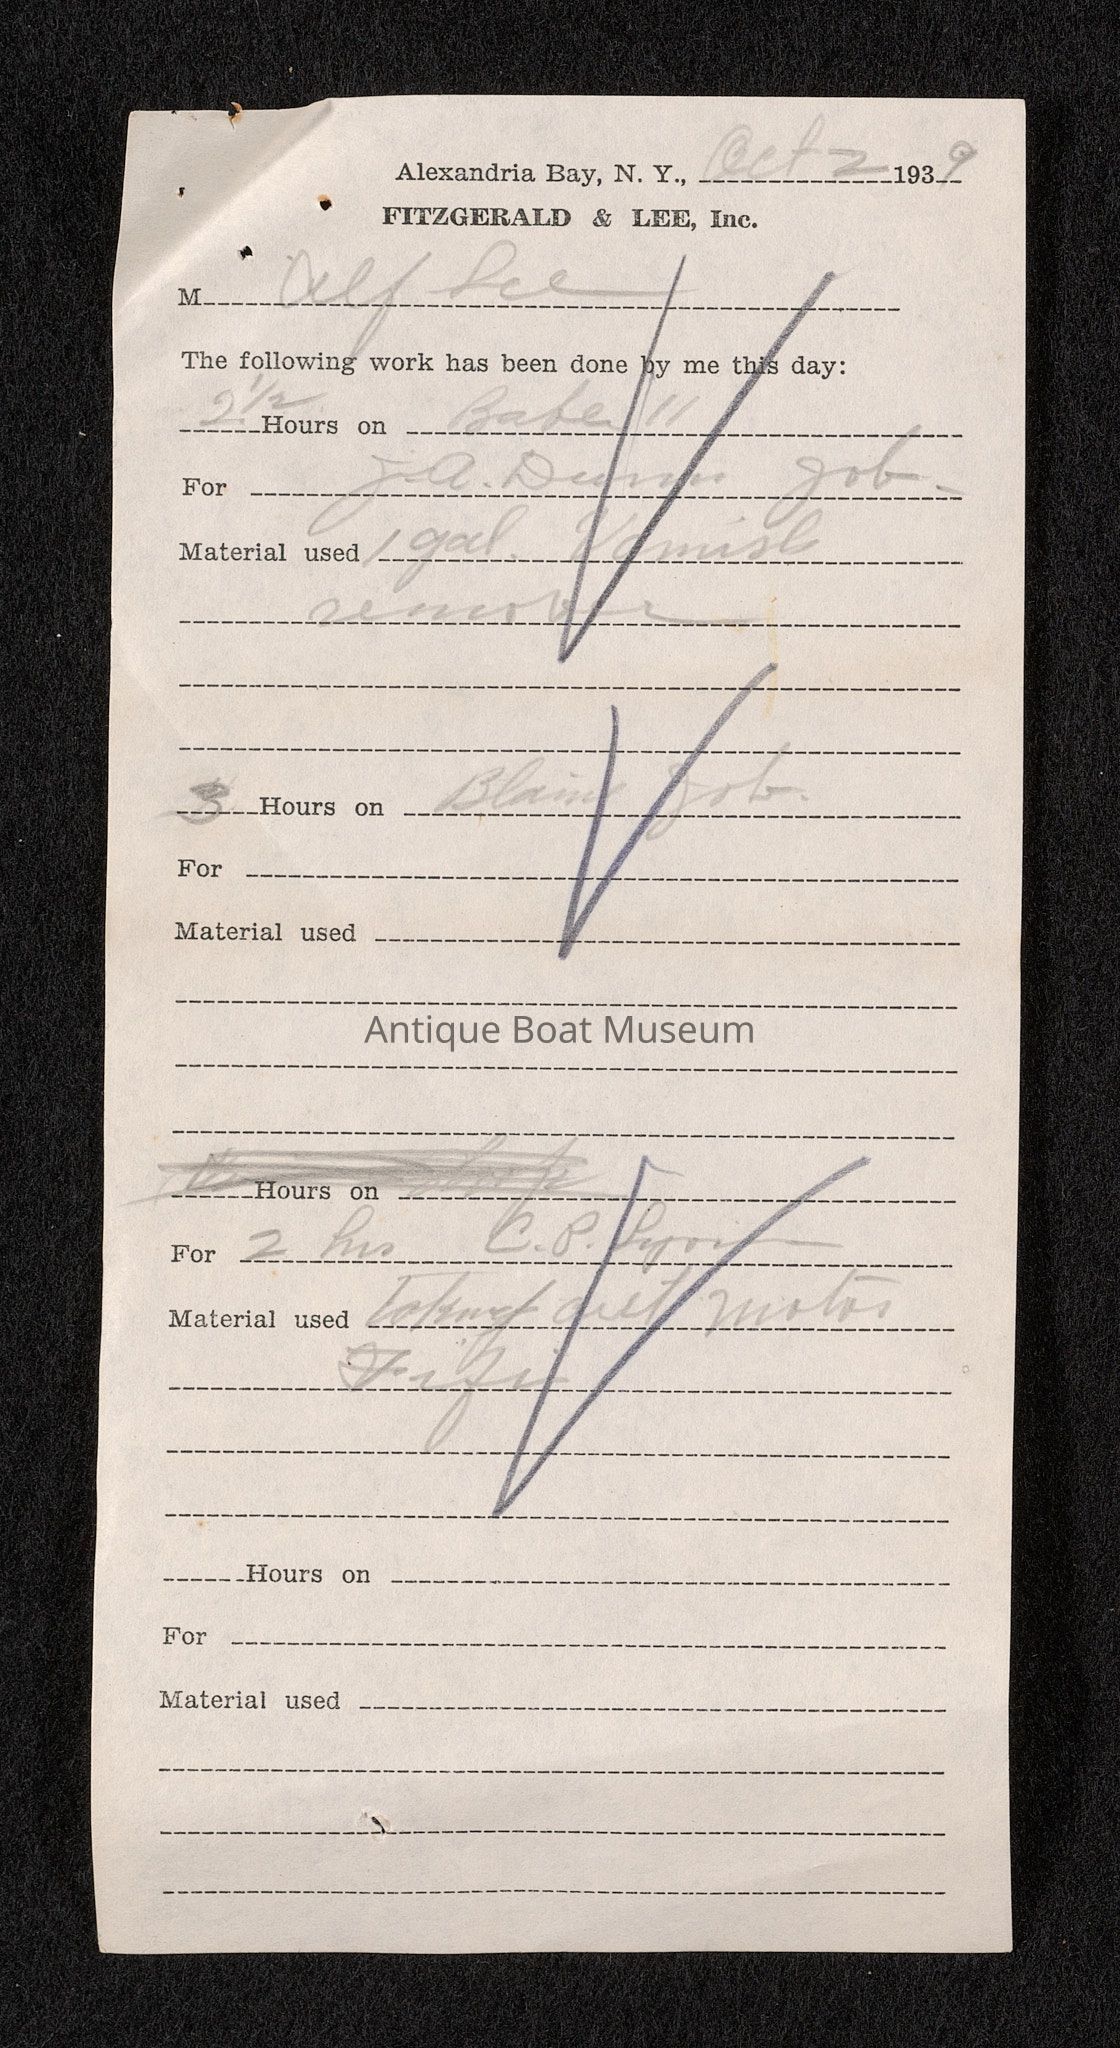 Alexandria Bay, N. Y., Oct 2 1939
FITZGERALD & LEE, Inc.
M Alf Lee
The following work has been done by me this day:
2 1/2 Hours on Babe II
For J.A. Dunn Job-
Material used 1 gal. Varnish
remover
3 Hours on Blaine Job.
For
Material used
Antique Boat Museum
Hours on
For 2 hrs C.P. Lyon
Material used Taking out motor
Fifi
Hours on
For
Material used